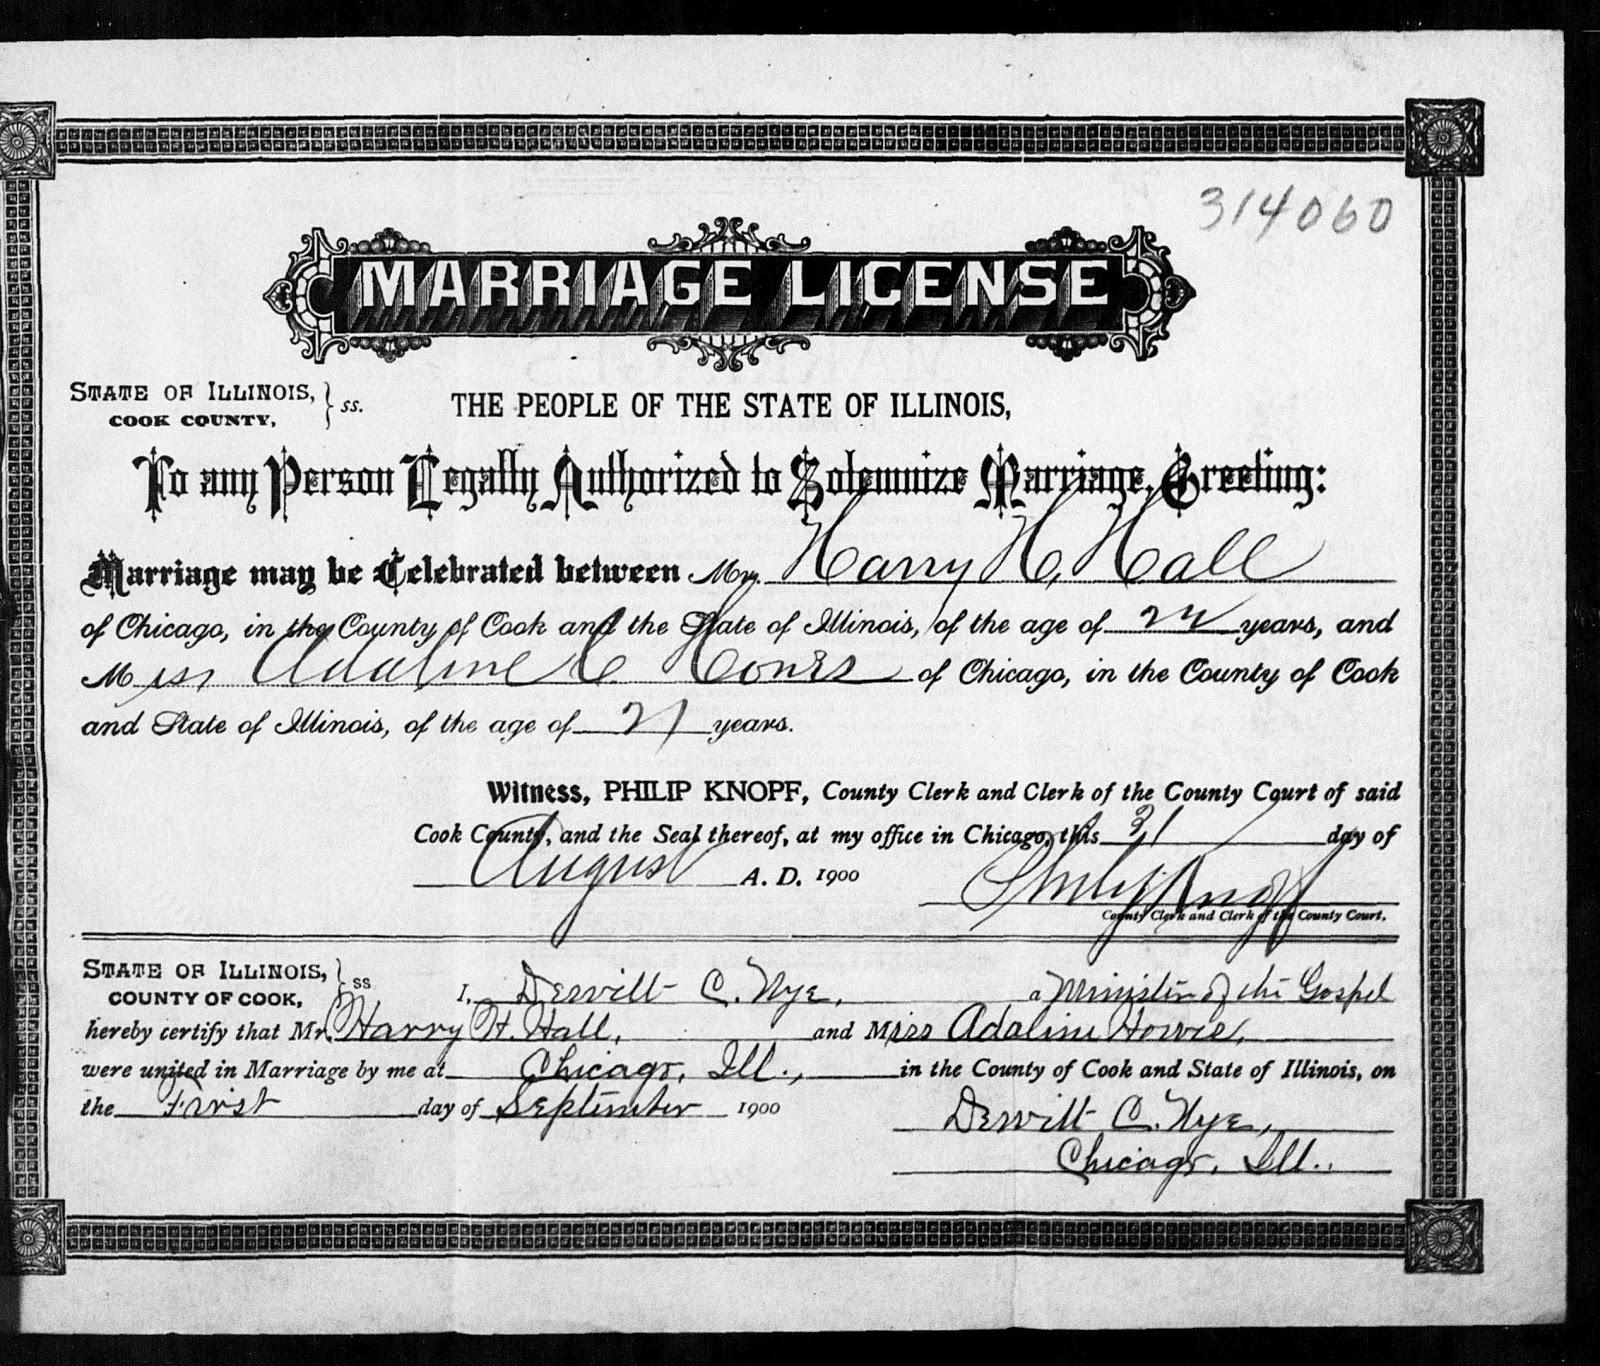 314060
MARRIAGE LICENSE
STATE OF ILLINOIS, } ss. THE PEOPLE OF THE STATE OF ILLINOIS,
COOK COUNTY,
To any Person Legally Authorized to Solemnize Marriage, Greeting:
Marriage may be Celebrated between Mr. Harry H. Hall
of Chicago, in the County of Cook and the State of Illinois, of the age of years, and
Miss Adaline C of Chicago, in the County of Cook
and State of Illinois, of the age of 21 years.
Witness, PHILIP KNOPF, County Clerk and Clerk of the County Court of said
Cook County, and the Seal thereof, at my office in Chicago, this 31 day of
August A. D. 1900 Philip Knopf
County Clerk and Clerk of the County Court.
STATE OF ILLINOIS, } ss I, Dewitt C. Nye, a Minister of the Gospel
COUNTY OF COOK,
hereby certify that Mr. Harry H. Hall, and Miss Adaline Howie,
were united in Marriage by me at Chicago, Ill., in the County of Cook and State of Illinois, on
the First day of September 1900
Dewitt C. Nye,
Chicago, Ill.